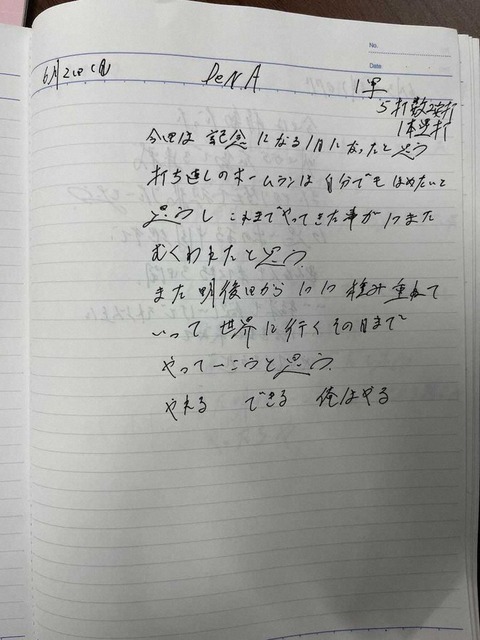 No.
Date
6月2日(月) DeNA 1軍
5打数2安打
1本塁打
今日は記念になる1日になったと思う
打ち返しのホームランは自分でもほめたいと
思うし これまでやってきた事が1つまた
むくわれたと思う
また明後日から1つ1つ積み重ねて
いって世界に行くその日まで
やってーこうと思う.
やれる できる 俺はやる